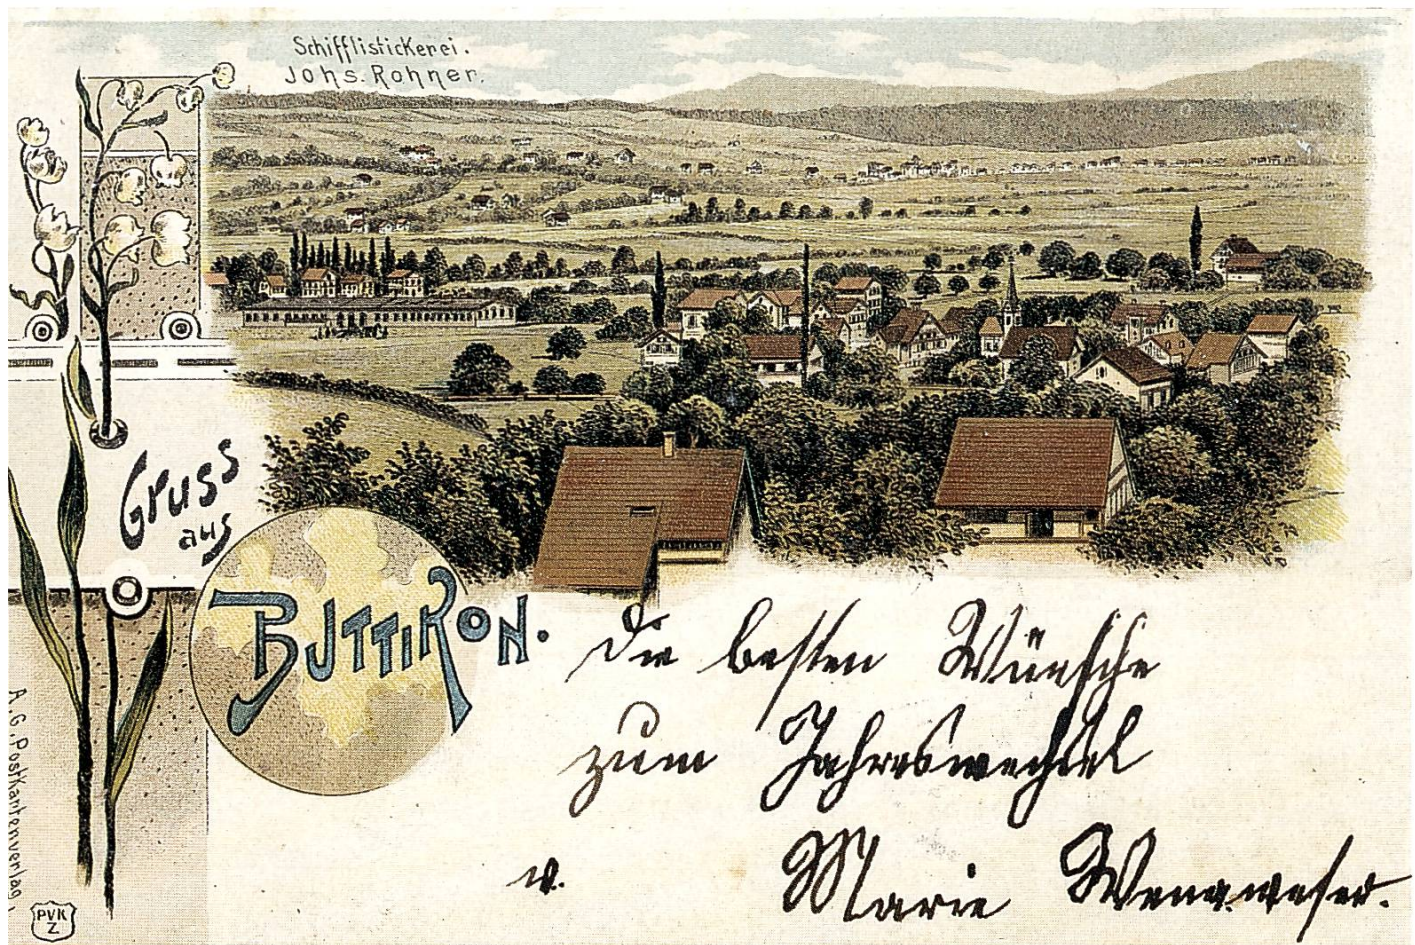 Schifflistickerei.
Johs. Rohner.
Gruss
aus
BUTTIKON.
Die besten Wünsche
zum Jahreswechsel
v. Marie
A. G. Postkartenverlag,
PVK
Z